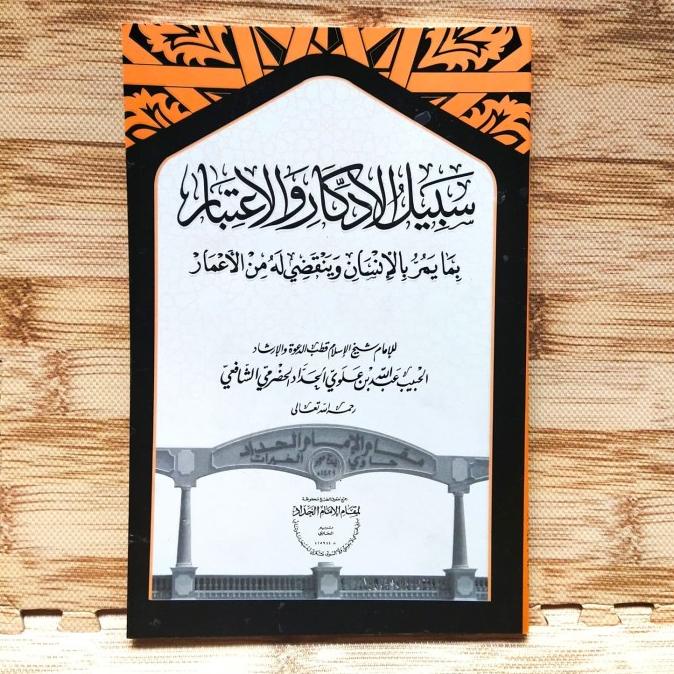 سَبِيلُ الْاِدِّكَارِ وَالْاِعْتِبَارِ
بِمَا يَمُرُّ بِالْإِنْسَانِ وَيَنْقَضِي لَهُ مِنَ الْأَعْمَارِ
للإمام شيخ الإسلام قطب الدعوة والإرشاد
الحبيب عبد الله بن علوي الحداد الحضرمي الشافعي
رحمه الله تعالى
مقام الإمام الحداد
حاوي الخيرات
لمقام الإمام الحداد